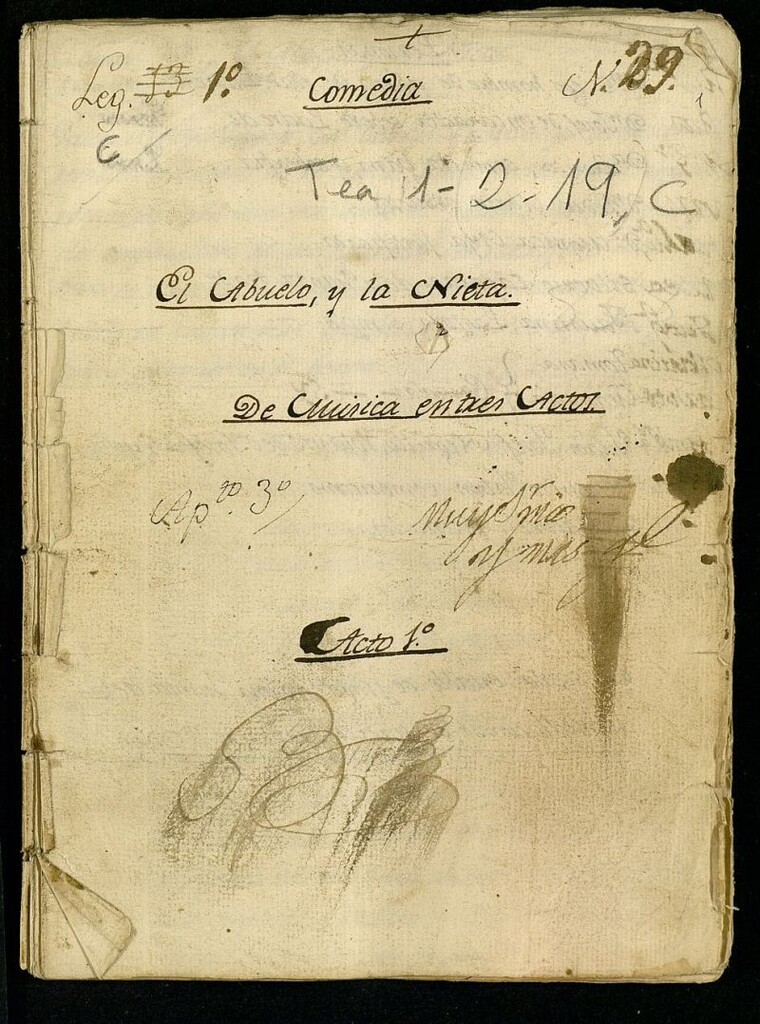 +
Leg. 13 1º. Comedia N. 29.
C
Tea 1-2-19, C
El Abuelo, y la Nieta.
De Musica en tres Actos.
Apto. 3º
Muy Sr. mio
y mas
Acto 1º.